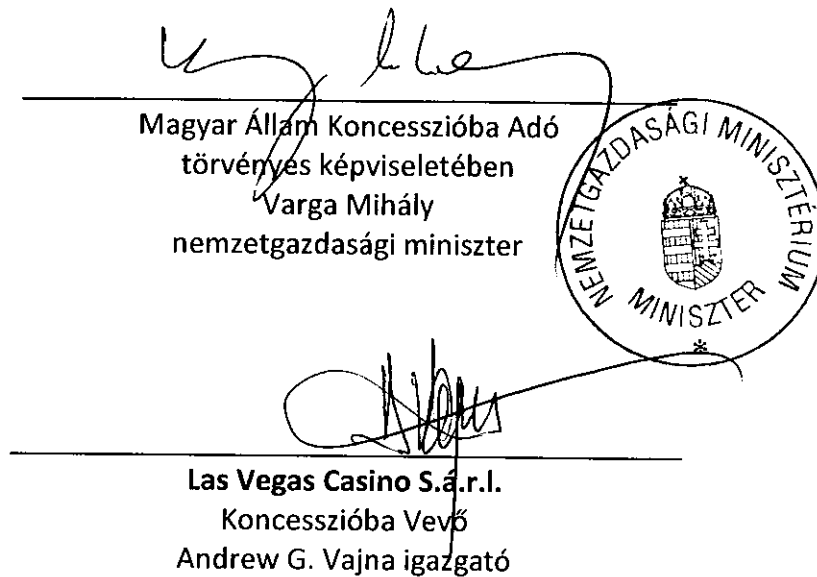 Magyar Állam Koncesszióba Adó
törvényes képviseletében
Varga Mihály
nemzetgazdasági miniszter
NEMZETGAZDASÁGI MINISZTÉRIUM
MINISZTER
*
Las Vegas Casino S.á.r.l.
Koncesszióba Vevő
Andrew G. Vajna igazgató